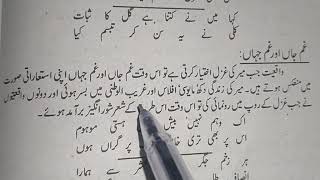 کہا میں نے کتنا ہے گل کا ثبات
کلی نے یہ سن کر تبسم کیا
غم جاں اور غم جہاں:
واقعیت جب میر کی غزل اختیار کرتی ہے تو اس وقت غم جاں اور غم جہاں اپنی استعاراتی صورت
میں منعکس ہوتے ہیں۔ میر کی زندگی دکھ مایوسی افلاس اور غریب الوطنی میں بسر ہوئی اور دونوں واقعیتوں
نے جب غزل کے روپ میں رونمائی کی تو اس وقت اس طرح کے شعر شور انگیز برآمد ہوئے۔
اک وہم نہیں بیش موہوم
اس پر بھی تری خا پر گراں ہوں
ہر زخم جگر سے ہمارا
انصاف طلب